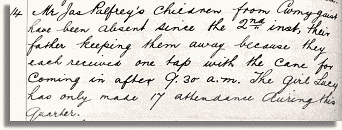 14 Mr Jas Pulfrey's Children from Cwmyguist
have been absent since the 2nd inst, their
father keeping them away because they
each received one tap with the cane for
coming in after 9.30 a.m. The Girl Lucy
has only made 17 attendance during this
Quarter.